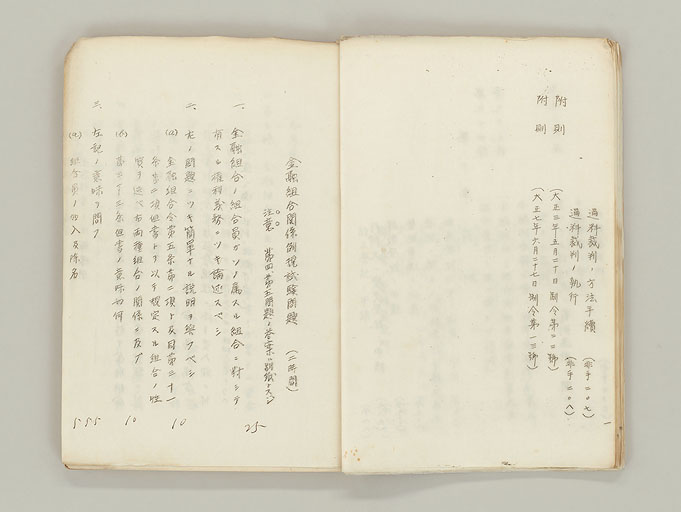 過料裁判ノ方法手續 (非手二〇七)
過料裁判ノ執行 (非手二〇八)
附則
(大正三年五月二十日制令第二二號)
附則
(大正七年六月二十七日制令第一三號)
金融組合関係例規試験問題 (二時間)
注意 第四、第五問題ノ答案ハ別紙トスベシ
一、金融組合ノ組合員ガソノ属スル組合ニ対シテ
有スル権利義務ニツキ論述スベシ 25
二、左ノ問題ニツキ簡単ナル説明ヲ終フベシ
(a) 金融組合令第五条第二項及同第二十一
条第二項但書トヲ以テ規定スル組合ノ性
質ヲ述ベ右両種組合ノ関係ニ及ブ 10
(b) 第三十二条但書ノ意味如何 10
三、左記ノ意味ヲ問フ
(a) 組合員ノ加入及除名 5 5 5